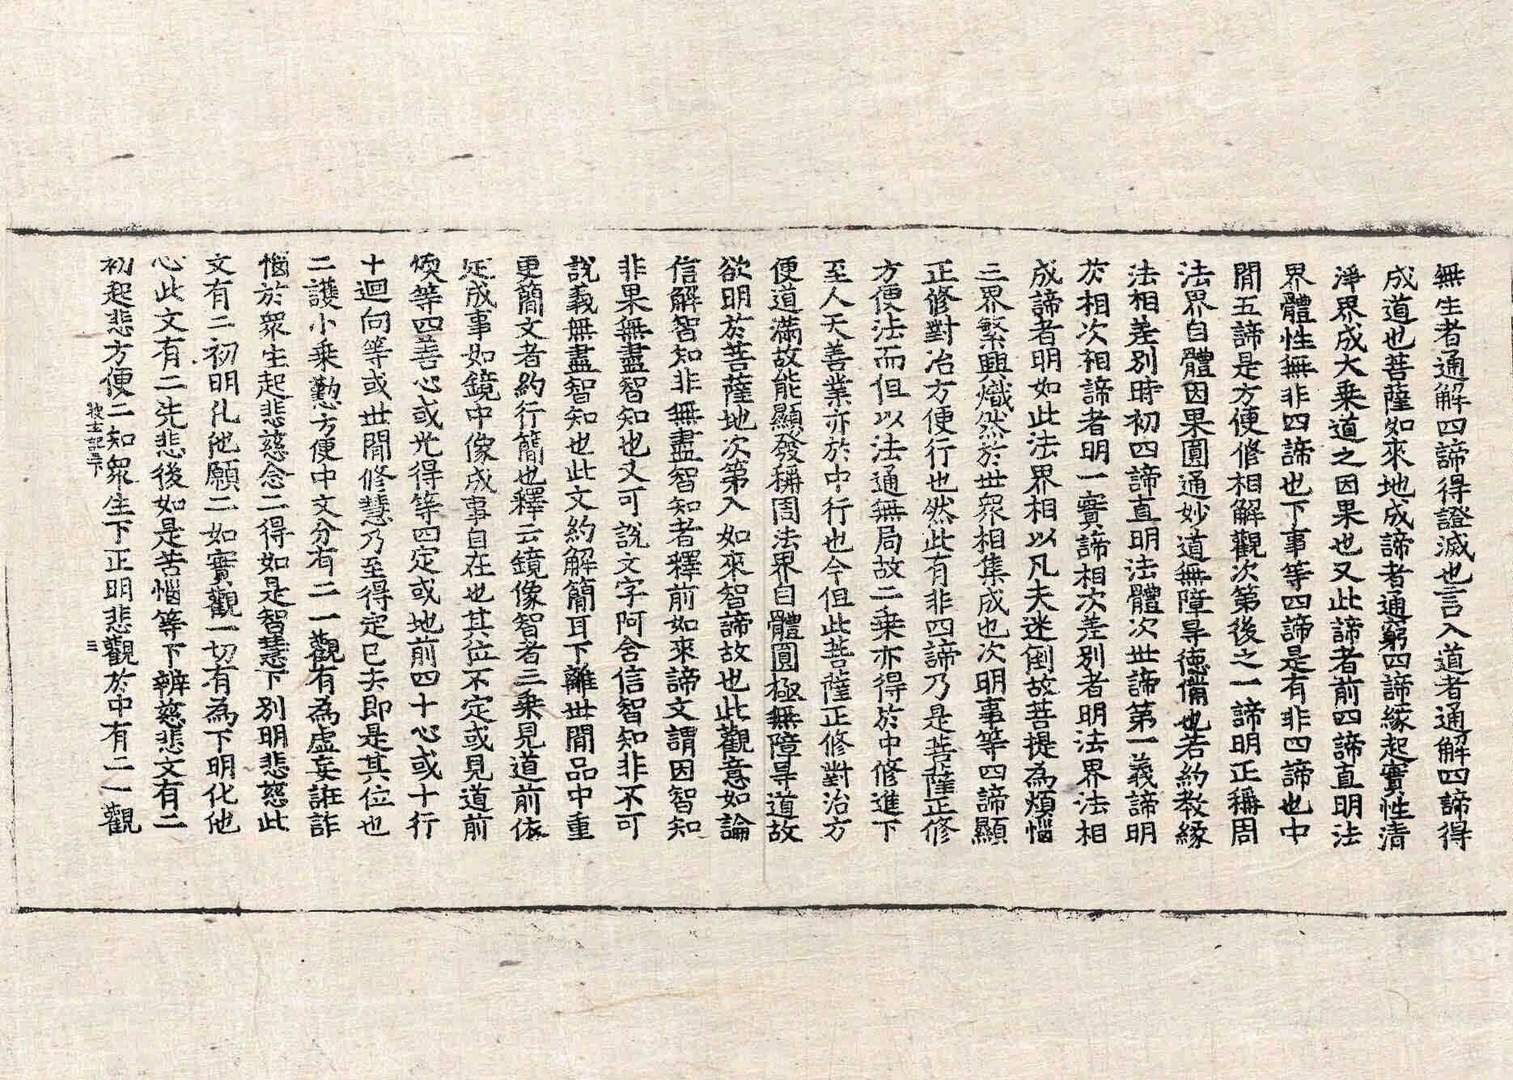 無生者通解四諦得證滅也言入道者通解四諦得
成道也菩薩如來地成諦者通窮四諦緣起實性清
淨界成大乘道之因果也又此諦者前四諦直明法
界體性無非四諦也下事等四諦是有非四諦也中
間五諦是方便修相解觀次第後之一諦明正稱周
法界自體因果圓通妙道無障㝵德備也若約教緣
法相差別時初四諦直明法體次世諦第一義諦明
於相次相諦者明一實諦相次差別者明法界法相
成諦者明如此法界相以凡夫迷倒故菩提為煩惱
三界繁興熾然於世眾相集成也次明事等四諦顯
正修對治方便行也然此有非四諦乃是菩薩正修
方便法而但以法通無局故二乘亦得於中修進下
至人天善業亦於中行也今但此菩薩正修對治方
便道滿故能顯發稱周法界自體圓極無障㝵道故
欲明於菩薩地次第入如來智諦故也此觀意如論
信解智知非無盡智知者釋前如來諦文謂因智知
非果無盡智知也又可說文字阿含信智知非不可
說義無盡智知也此文約解簡耳下離世間品中重
更簡文者約行簡也釋云鏡像智者三乘見道前依
定成事如鏡中像成事自在也其位不定或見道前
煗等四善心或光得等四定或地前四十心或十行
十迴向等或世間修慧乃至得定已去即是其位也
二護小乘懃方便中文分有二一觀有為虛妄誑詐
惱於眾生起悲慈念二得如是智慧下別明悲慈此
文有二初明化他願二如實觀一切有為下明化他
心此文有二先悲後如是苦惱等下辨慈悲文有二
初起悲方便二知眾生下正明悲觀於中有二一觀
三